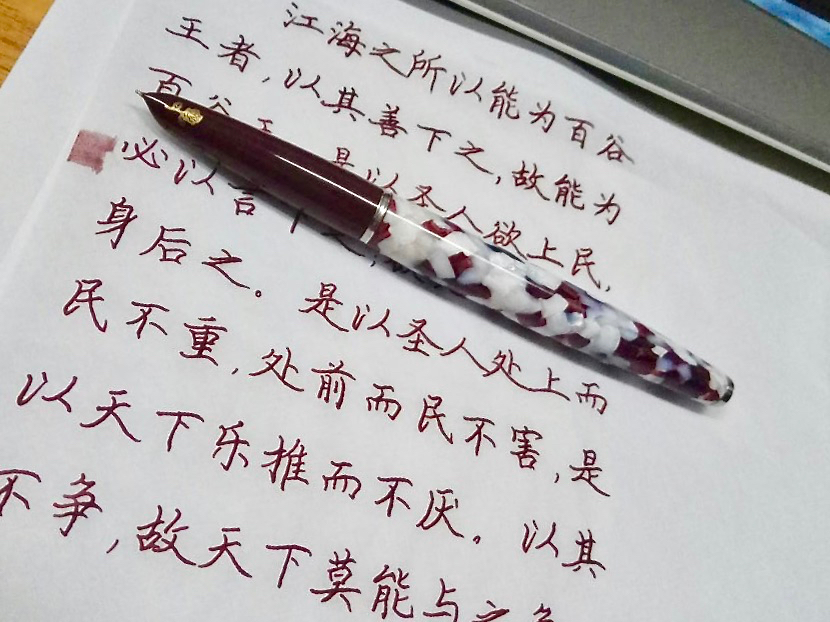 江海之所以能为百谷
王者，以其善下之，故能为
百谷王 是以圣人欲上民，
必以言下之，
身后之。是以圣人处上而
民不重，处前而民不害，是
以天下乐推而不厌。以其
不争，故天下莫能与之争